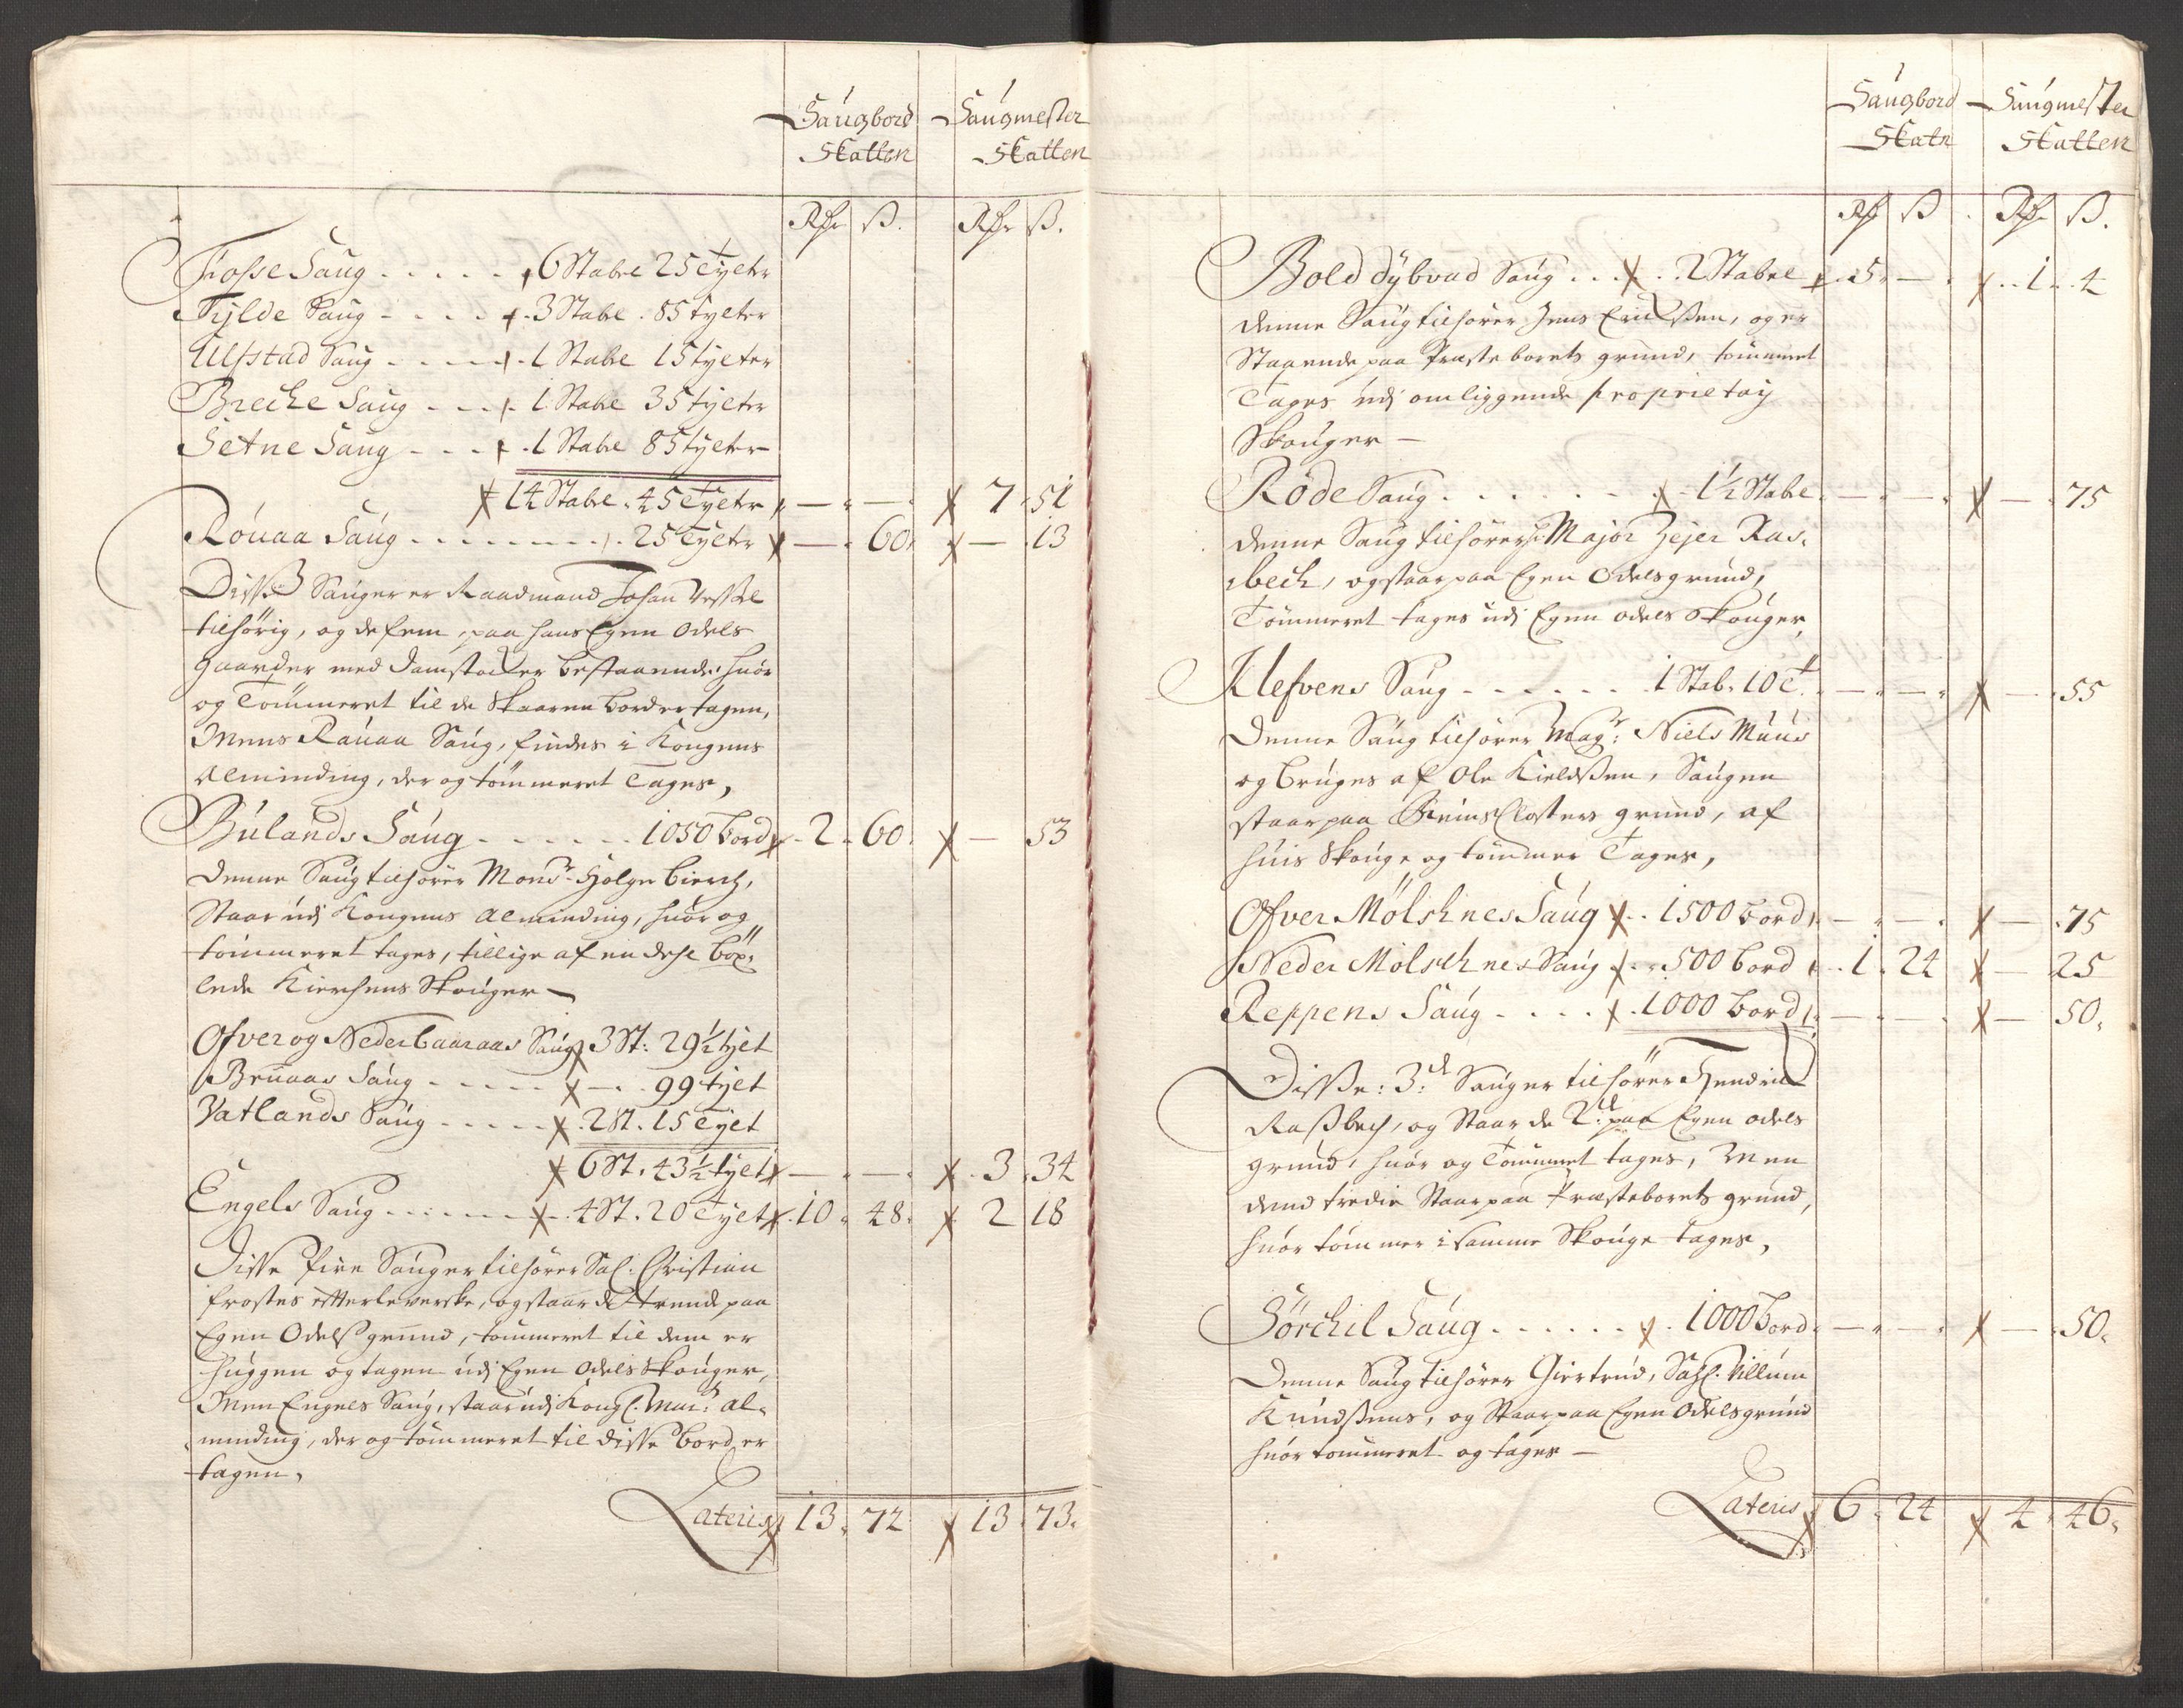 Saugbord Skatten
Saugmester Skatten
Rdr ß. Rdr ß.
Fosse Saug - - - - - 6 Stabe 25 tyeter
Fylde Saug - - - - 3 Stabe . 85 tyeter
Ulfstad Saug - - - - 1 Stabe 15 tyeter
Breche Saug - - - 1 Stabe 35 tyeter
Setne Saug - - - 1 Stabe 85 tyeter
14 Stabe . 45 tyeter — — 7 51
Rouaa Saug - - - - - - - 25 Tyeter — 60 — 13
Disse Sauger er Raadmand Johan Wessel
tilhörig, og de fem, paa hans Egen Odels
gaarder med Damstocker bestaaende, huor
og Tömmeret til de skaaren border tagen,
Mens Rauaa Saug, findes i Kongens
Alminding, der og tömmeret Tages,
Bulands Saug - - - - - 1050 bord 2 60 — 53
Denne Saug tilhörer Monsr Holger Bierch,
Staar udj Kongens Alminding, huor og
tömmeret tages, tillige af en dehl böx-
lede Kierchens Skouger —
Ofver og Neder Baaraas Saug 3 St: 29½ tyet
Bruaas Saug - - - - - — 99 tyet
Vatlands Saug - - - - - 2 St. 15 Tyet
6 St. 43½ tyet — — 3 34
Engels Saug - - - - - - 4 St. 20 Tyet 10 48 2 18
Disse fire Sauger tilhörer Sal: Christian
Frostes Efterleverske, og staar de trende paa
Egen Odelß grund, tömmeret til dem er
huggen og tagen udj Egen Odels Skouger,
Men Engels Saug, staar udj Kongl. Mais: Al-
minding, der og tömmeret til disse bord er
tagen,
Lateris 13 72 13 73
Saugbord Skatn
Saugmester Skatten
Rdr ß Rdr ß.
Bolddybvad Saug . . . 2 Stabel 5 — 1 4
Denne Saug tilhörer Jens Erichßen, og er
Staaende paa Præsteborets grund, tömmeret
Tages udj omliggende proprietair
Skouger —
Röde Saug - - - - - - 1½ Stabe — — — 75
Denne Saug tilhörer Hr Major Zejer Ras-
bech, og staar paa Egen Odelsgrund,
Tömmeret tages udj Egen odels Skouger,
Klefvens Saug - - - - - - 1 Stab. 10 t. — — — 55
Denne Saug tilhörer Magr: Niels Muus
og bruges af Ole Kieldßen, Saugen
staar paa Reins Closters grund, af
huis Skouge og tömmer Tages,
Ofver Mölschnes Saug - 1500 bord — — — 75
Neder Mölschnes Saug - 500 bord 1 24 — 25
Reppens Saug - - - - 1000 bord — — — 50
Disse: 3de Sauger tilhörer Hendrich
Raßbech, og Staar de 2de paa Egen odels
grund, huor og Tömmeret tages, Men
dend tredie Staar paa Præsteborets grund,
huor tömmer i samme Skouge tages,
Sörchil Saug - - - - - - 1000 Bord — — — 50
Denne Saug tilhörer Giertrud, Sahl. Villum
Knudßens, og Staar paa Egen Odelsgrund
huor tömmeret og tages —
Lateris 6 24 4 46